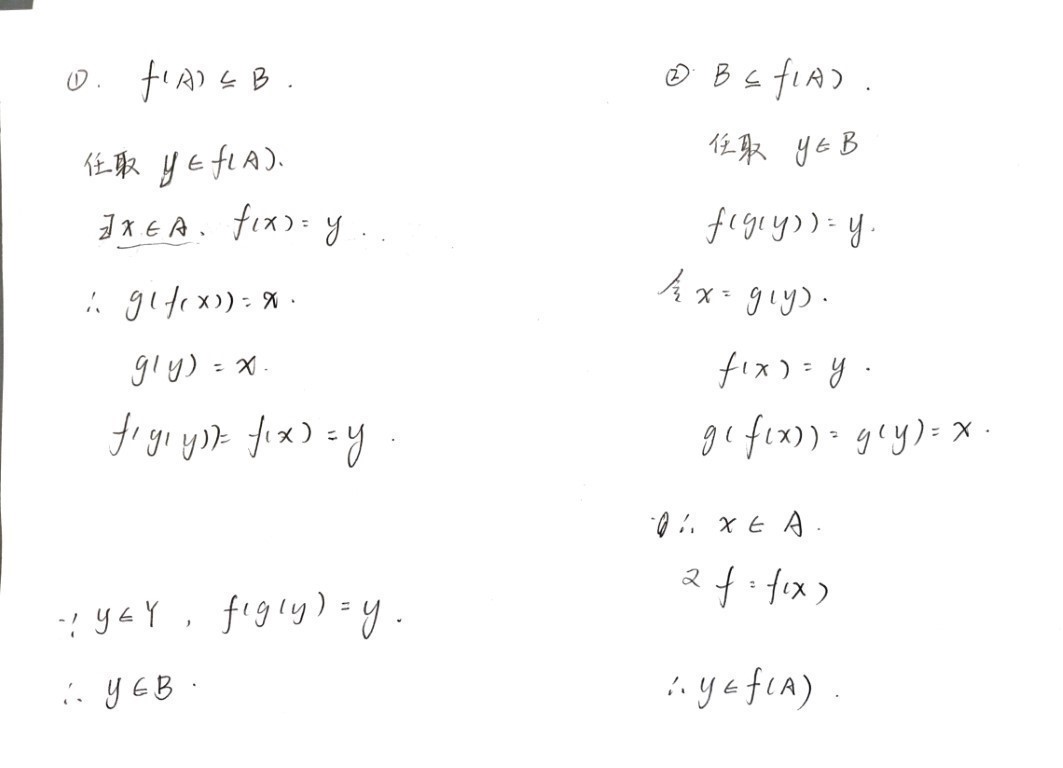 ①. f(A) ⊆ B.
任取 y ∈ f(A).
∃x ∈ A. f(x) = y ..
∴ g(f(x)) = x.
g(y) = x.
f(g(y)) = f(x) = y.
∵ y ∈ Y, f(g(y) = y.
∴ y ∈ B.
② B ⊆ f(A).
任取 y ∈ B
f(g(y)) = y.
令 x = g(y).
f(x) = y.
g(f(x)) = g(y) = x.
∴ x ∈ A.
f = f(x)
∴ y ∈ f(A).